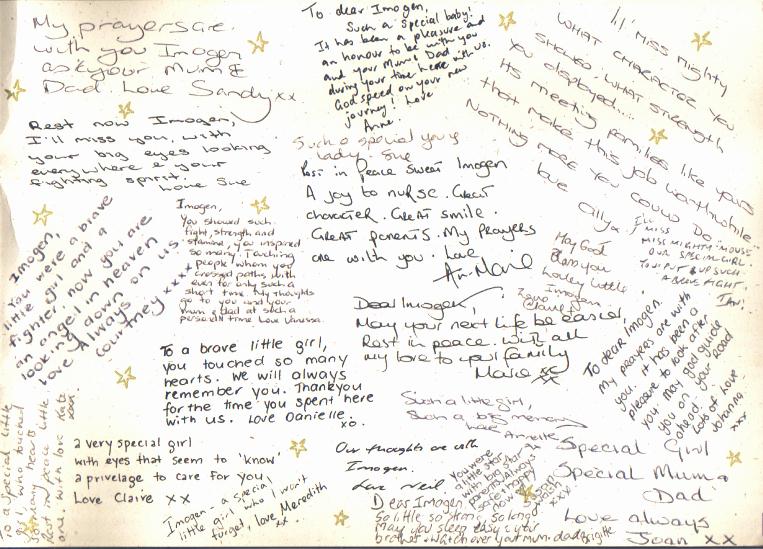 My prayers are
with you Imogen
as is your Mum &
Dad. Love Sandy xx
To dear Imogen,
Such a special baby!
It has been a pleasure and
an honour to be with you
and your Mum & Dad
during your time here with us.
God speed on your new
journey! Love
Anne.
I'll miss mighty
what character you
showed. What strength
you displayed....
Its meeting families like yours
that make this job worthwhile..
Nothing more you could do.
love Ally x
Rest now Imogen,
I'll miss you, with
your big eyes looking
everywhere & your
fighting spirit.
Love Sue
Such a special young
lady. Sue
Rest in Peace Sweet Imogen
A joy to nurse. Great
character. Great smile.
Great parents. My Prayers
are with you. Love
An-Marie
Imogen,
You were a brave
little girl and a
fighter, now you are
an angel in heaven
looking down on us
Love Always
Courtney xxxx
Imogen,
You showed such
fight, strength and
stamina, you inspired
so many. Touching
people whom you
crossed paths with
even for only such a
short time. My thoughts
go to you and your
mum & dad at such a
personal time. Love Vanessa.
I'll
miss
miss mighty-mouse
our special girl.
To put up such
a brave fight.
Ian!
May God
Bless you
Lovley Little
Imogen
Dear Imogen,
May your next life be easier,
Rest in peace. With all
my love to your family
Marie xx
To dear Imogen.
My prayers are with
you. It has been a
pleasure to look after
you. May god guide
you on your road
ahead.
Lots of Love
Johanna
xxx
To a brave little girl,
you touched so many
hearts. We will always
remember you. Thankyou
for the time you spent here
with us. Love Danielle.
xo.
Such a little girl,
Such a big memory
love Annette
To a special little
girl, who touched
so many hearts
Rest in peace little
one. with love Kate
xxx
a very special girl
with eyes that seem to 'know'
a privelage to care for you
Love Claire xx
Imogen - a special
little girl who I won't
forget, love Meredith
xx.
Our thoughts are with
Imogen.
Love Neil
You were
a little star
with big star
parents. Always
safe & happy
now
xxx
Special Girl
Special Mum &
Dad
Love always
Joan xx
Dear Imogen,
So little so strong so long
May you sleep easy & your
brother watch over your mum & dad. Brigitte